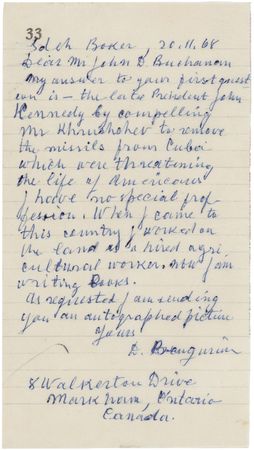 33
Sdeh Boker, 20.11.68
Dear Mr John D. Buchanan
My answer to your first quest
ion is - the late President John
Kennedy by compelling
Mr Khrushchev to remove
the missils from Cuba
which were threatening
the life of Americans
I have no special prof
fession. When I came to
this country I worked on
the land as a hired agri-
cultural worker. now I am
writing books.
As requested I am sending
you an autographed picture
Yours
D. Ben gurion
8 Walkerton Drive
Markham, Ontario
Canada.